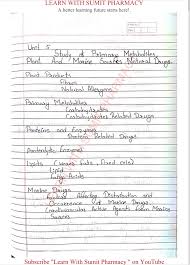 LEARN WITH SUMIT PHARMACY
A better learning future starts here!
Unit 5
Study of Primary Metabolites,
Plant And Marine Sources Natural Drugs.
Plant Products
Fibers
Natural Allergens
Primary Metabolites
Carbohydrates
Carbohydrates Related Drugs
Proteins and Enzymes
Proteins Related Drugs
Proteolytic Enzymes
Lipids (Waxes, fats, fixed oils)
Lipid
Marine Drugs
Distribution and
Occurrence of Marine Drugs
Cardiovascular Active Agents from Marine
Sources
Subscribe "Learn With Sumit Pharmacy " on YouTube